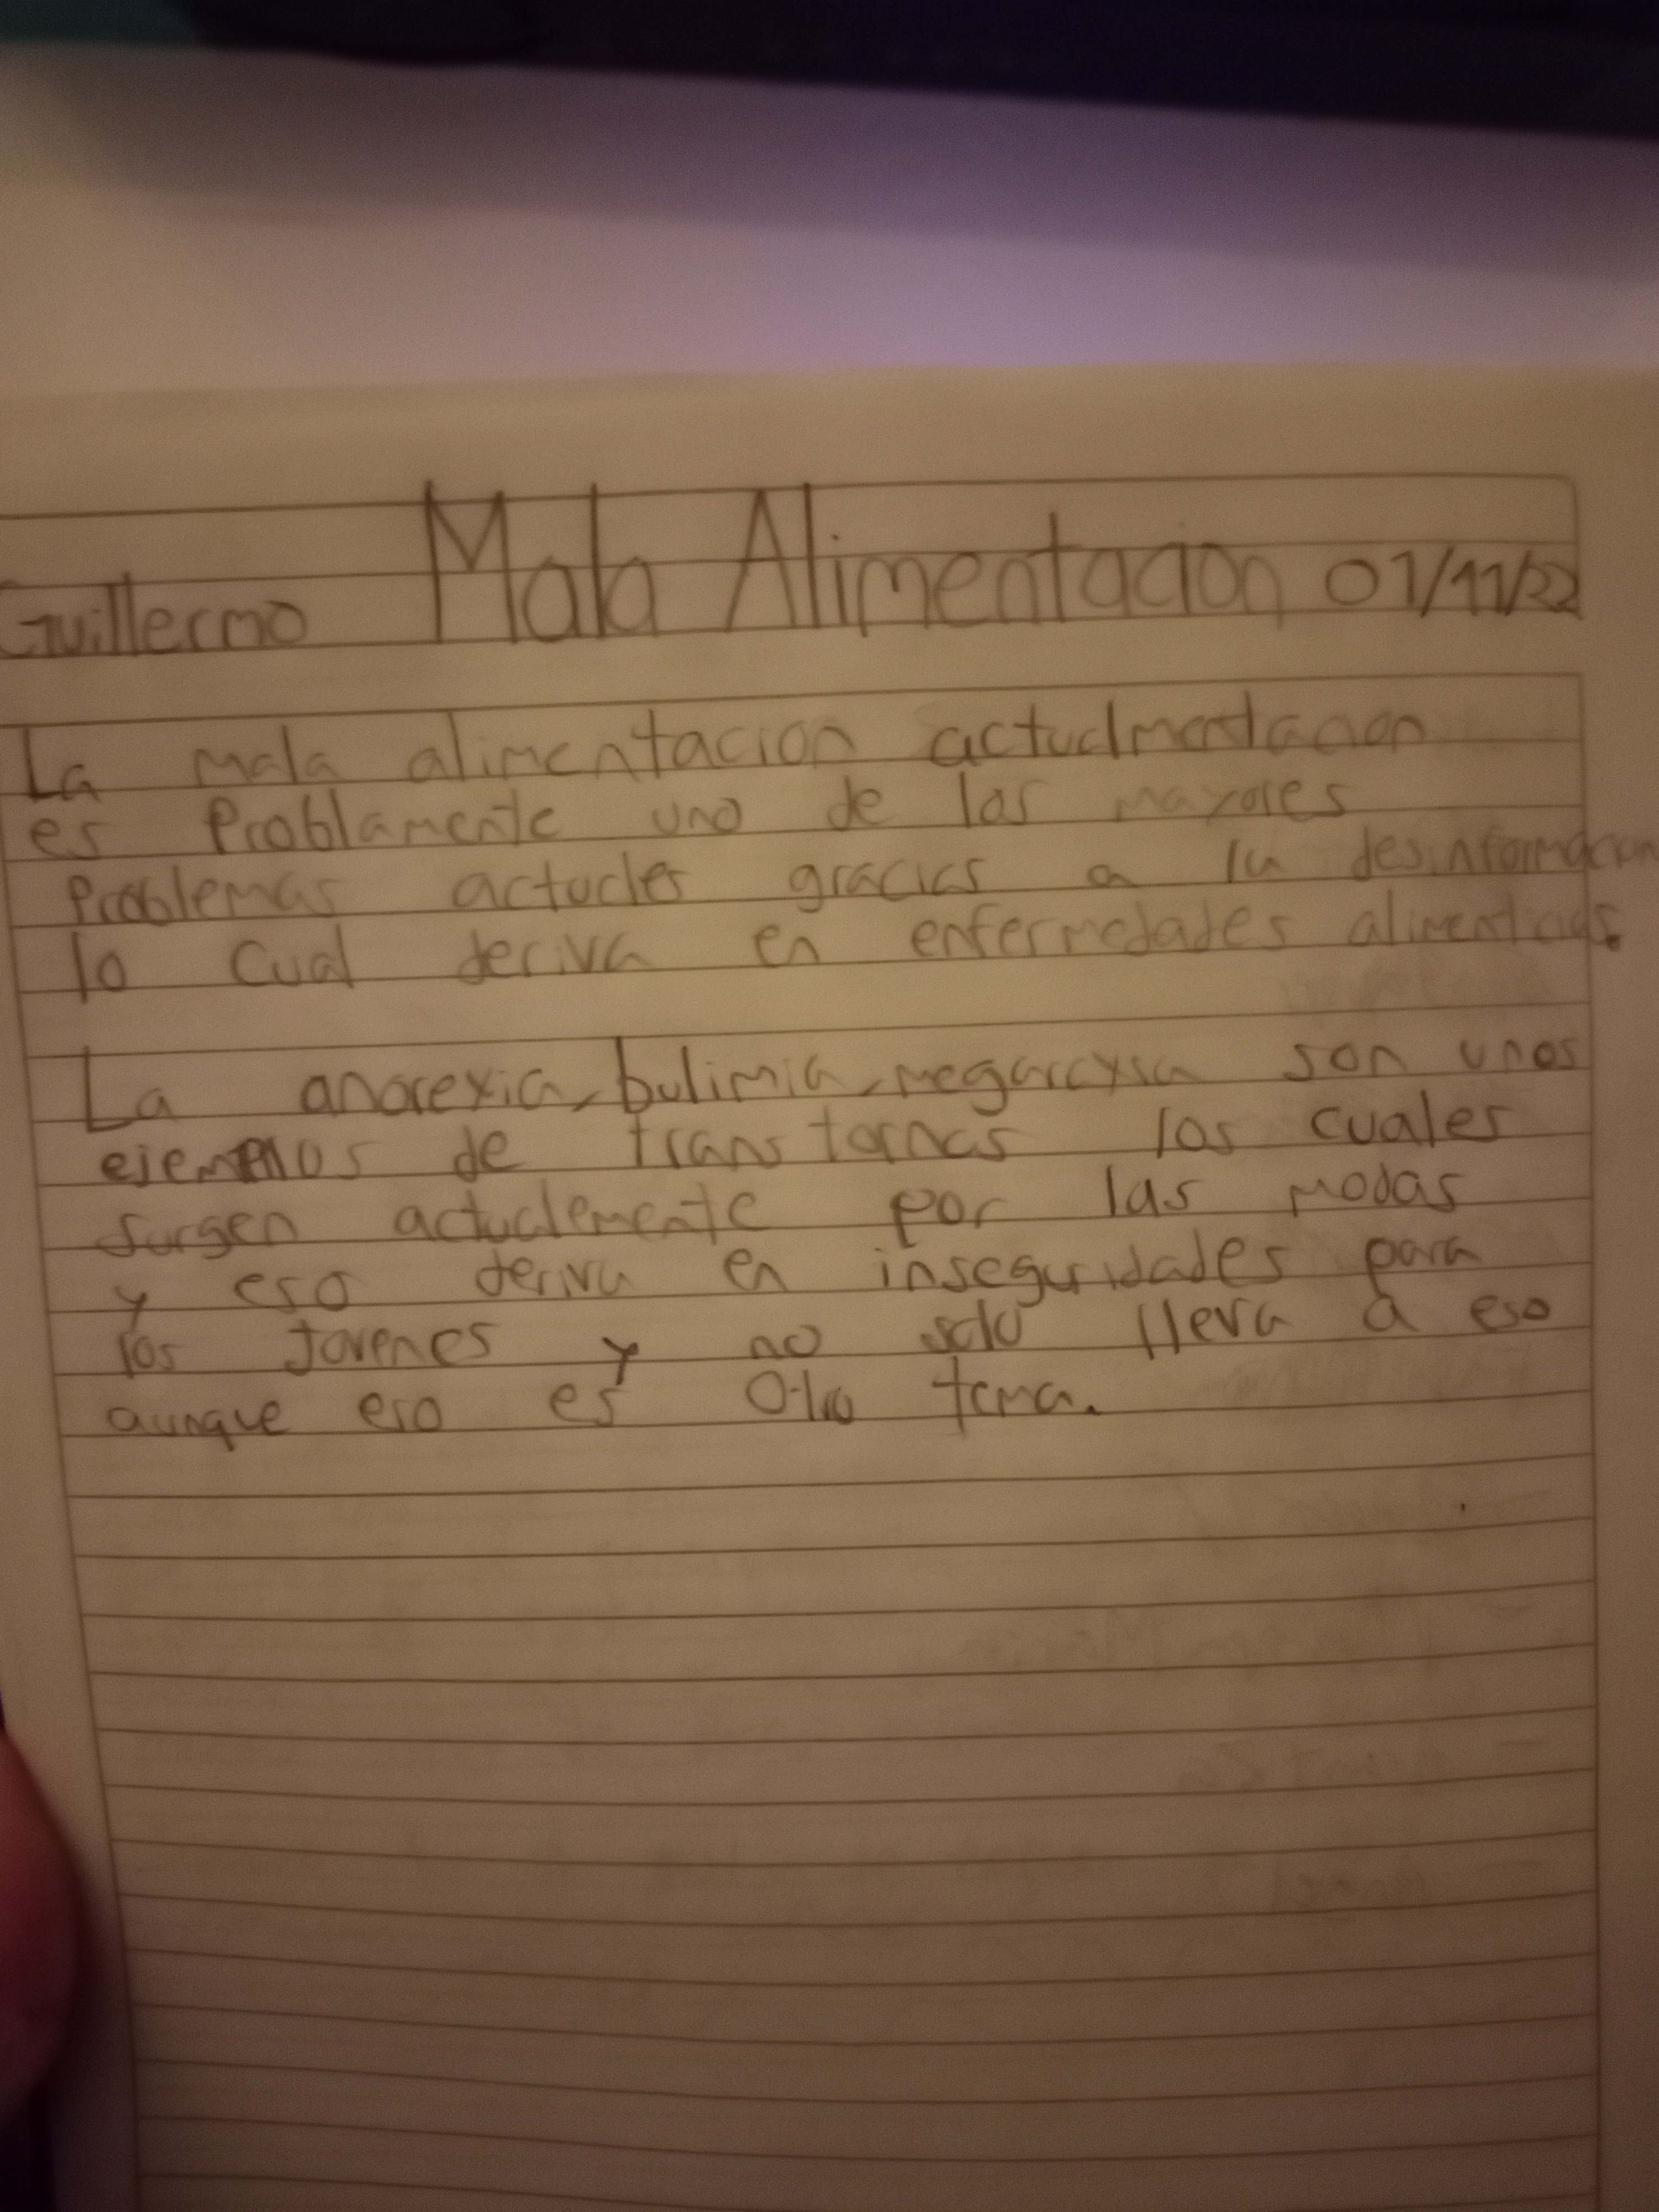 Guillermo Mala Alimentacion 01/11/22
La mala alimentacion actualmentacion
es Problamente uno de los mayores
Problemas actuales gracias a la desinformacion
lo cual deriva en enfermedades alimenticias.
La anorexia, bulimia, megarexia son unos
ejemplos de transtornos los cuales
surgen actualemente por las modas
y eso deriva en inseguridades para
los Jovenes y no solo lleva a eso
aunque eso es Otro tema.